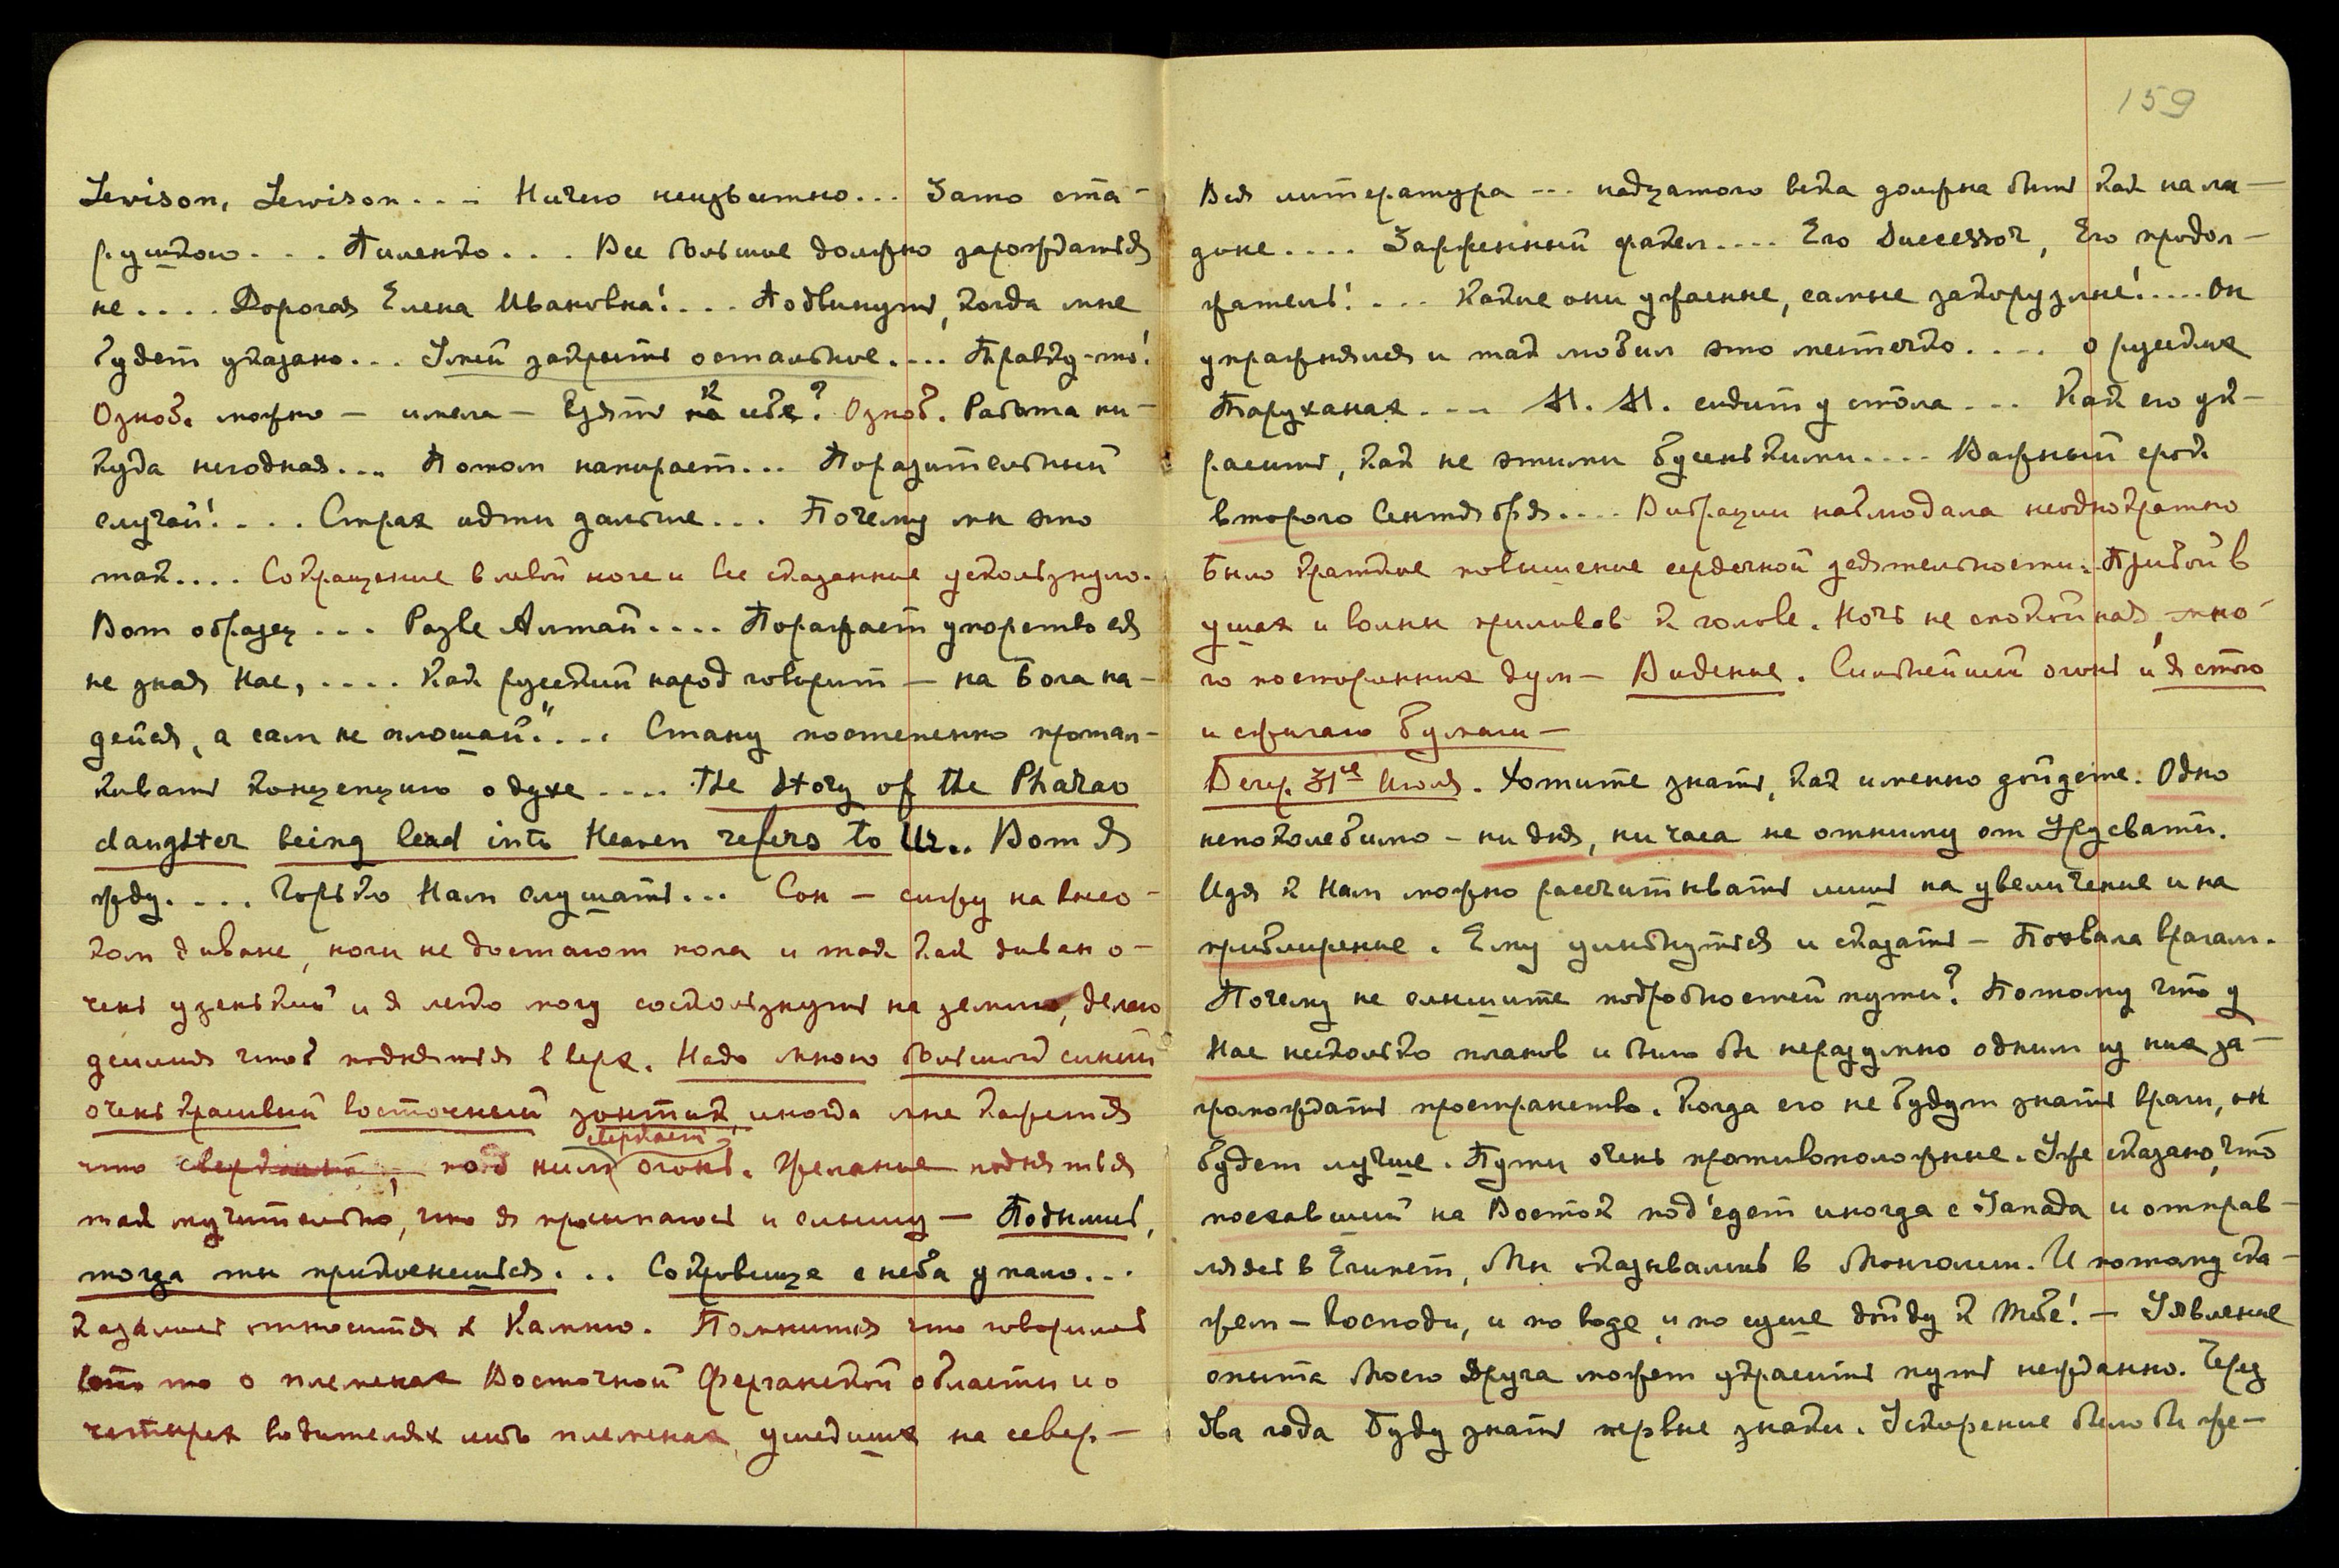 Levison, Lewison.... Ничего неизвестно... Зато ста-
рушкою.... Пиленко... Все большие должно зарождаться
не.... Дорогая Елена Ивановна!... Подвинуть, когда мне
будет указано... Умей закрыть остальные.... Правду-то!
Озноб. можно — имела — взять на к себе? Озноб. Работа ни-
куда негодная... Потом напирает... Поразительный
случай!.... Страх идти дальше... Почему мы это
так.... Сокращение в левой ноге и все сказанные ускользнуло.
Вот образец... Разве Алтай.... Поражает упорство ея
не зная Нас,.... Как русский народ говорит — на Бога на-
дейся, а сам не плошай."... Стану постепенно протал-
кивать концепцию о духе.... The Story of the Pharao
daughter being lead into Heaven refers to Ur.. Вот я
жду.... Горько Нам слушать... Сон — сижу на высо-
ком диване, ноги не достают пола и так как диван о-
чень узенький и я легко могу соскользнуть на землю, делаю
усилия чтоб подняться вверх. Надо мною большой синий
очень красивый восточный зонтик, иногда мне кажется
сверкает
что под ним огонь. Желание подняться
так мучительно, что я просыпаюсь и слышу — Подымись,
тогда ты прикоснешься... Сокровище с неба упало...
Казалось относится к Камню. Помнится что говорилось
что то о племенах Восточной Ферганской области и о
четырех водителях или племенах, ушедших на север —
159
Вся литература ... надцатого века должна быть как на ла-
доне.... Зажженный факел.... Его Successor, Его продол-
жатель!.... Какие они ужасные, самые закорузлые!.... Он
упражнялся и так любил это местечко.... о русских
Тарханах.... М. М. сидит у стола... Как его ук-
расить, как не этими бусеньками.... Важный срок
второго Сентября.... Вибрации наблюдала неоднократно
Было краткое повышение сердечной деятельности. Прибой в
ушах и волны приливов к голове. Ночь не спокойная, мно-
го посторонних дум — Видение. Сильнейший огонь и я стою
и сжигаю бумаги —
Вечер. 31ое Июля. Хотите знать, как именно дойдете. Одно
непоколебимо — ни дня, ни часа не отниму от Урусвати.
Идя к Нам можно рассчитывать лишь на увеличение и на
приближение. Ему улыбнуться и сказать — Похвала врагам.
Почему не слышите подробностей пути? Потому что у
Нас несколько планов и было бы неразумно одним из них за-
громождать пространство. Когда его не будут знать враги, он
будет лучше. Пути очень противоположные. Уже сказано, что
поехавший на Восток под'едет иногда с Запада и отправ-
ляясь в Египет, Мы оказывались в Монголии. И потому ска-
жем — Господи, и по воде и по суше дойду к Тебе! — Уявление
опыта Моего Друга может украсить путь нежданно. Через
два года Буду знать первые знаки. Ускорение было бы же-